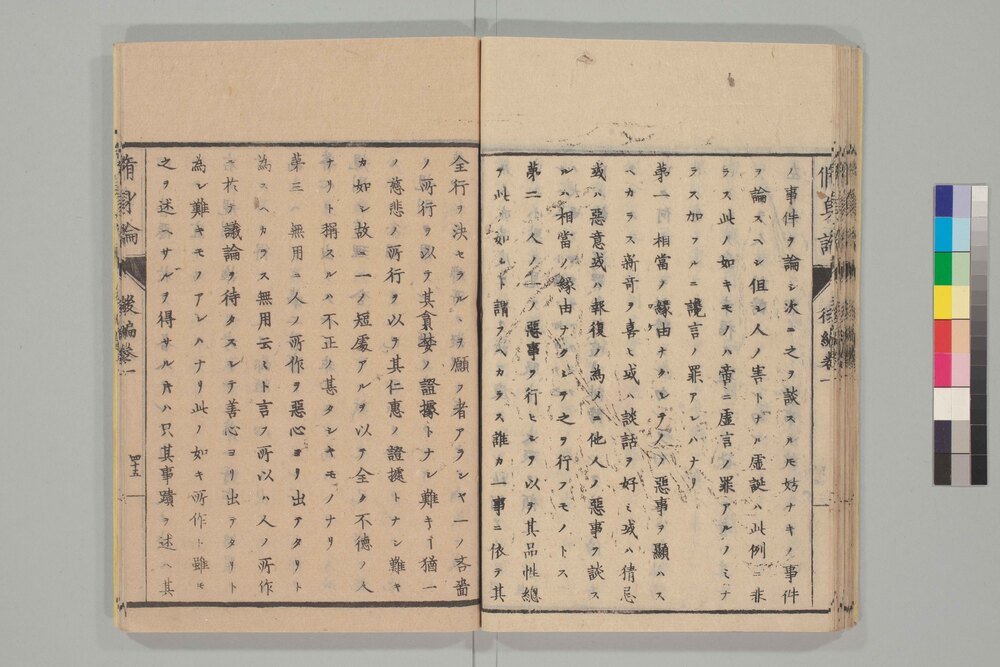 ノ事件ヲ論シ次ニ之ヲ談スルモ妨ナキノ事件
ヲ論スヘシ但シ人ノ害トナル虚誕ハ此例ニ非
ラス此ノ如キモノハ啻ニ虚言ノ罪アルノミナ
ラス加フルニ讒言ノ罪アレハナリ
第一 相當ノ緣由ナクシテ人ノ惡事ヲ顯ハス
ヘカラス新奇ヲ喜ヒ或ハ談話ヲ好ミ或ハ猜忌
或ハ惡意或ハ報復ノ為メニ他人ノ惡事ヲ談ス
ルハ相當ノ緣由ナクシテ之ヲ行フモノトス
第二 人ノ一ノ惡事ヲ行ヒシヲ以テ其品性總
テ此ノ如シト謂フヘカラス誰カ一事ニ依テ其
全行ヲ決セラルヽヲ願フ者アランヤ一ノ吝嗇
ノ所行ヲ以テ其貪婪ノ證據トナシ難キヿ猶一
ノ慈悲ノ所行ヲ以テ其仁惠ノ證據トナシ難キ
カ如シ故ニ一ノ短處アルヲ以テ全ク不德ノ人
ナリト稱スルハ不正ノ甚タシキモノナリ
第三 無用ニ人ノ所作ヲ惡心ヨリ出タリト
為スヘカラス無用云々ト言フ所以ハ人ノ所作
ニ於テ議論ヲ待タスシテ善心ヨリ出テタリト
為シ難キモノアレハナリ此ノ如キ所作ト雖モ
之ヲ述ヘサルヲ得サル片ハ只其事蹟ヲ述ヘ其
脩身論 後編卷一 四十五